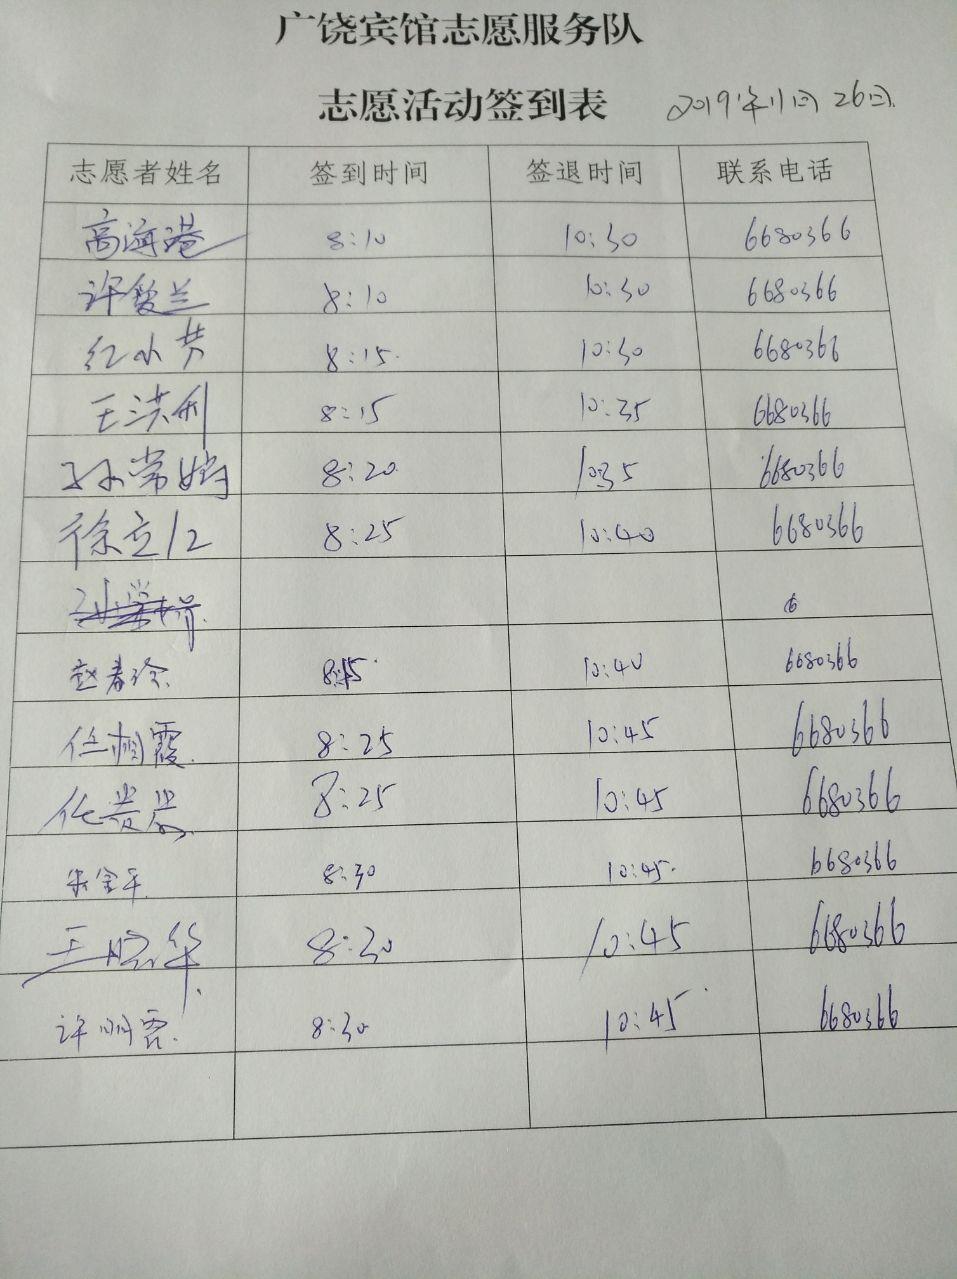 广饶宾馆志愿服务队
志愿活动签到表 2019年11月26日.
志愿者姓名 签到时间 签退时间 联系电话
高海港 8:10 10:30 6680366
许爱兰 8:10 10:30 6680366
红小芳 8:15 10:30 6680366
王洪利 8:15 10:35 6680366
孙常娟 8:20 10:35 6680366
徐立 8:25 10:40 6680366
6
赵春玲. 10:40 6680366
任相霞. 8:25 10:45 6680366
8:25 10:45 6680366
宋金平. 8:30 10:45. 6680366
王晓华. 8:30 10:45 6680366
许明霞. 8:30 10:45 6680366